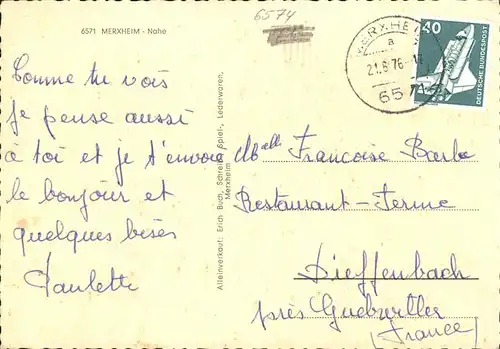 6571 MERXHEIM - Nahe
6574
Comme tu vois
je pense aussi
à toi et je t'envoie
le bonjour et
quelques bises
Paulette
Alleinverkauf: Erich Buch, Schreib-, Spiel-, Lederwaren,
Merxheim
MERXHEIM
a
21.8.76
657
40
DEUTSCHE BUNDESPOST
Melle Françoise Barbe
Restaurant-Ferme
Dieffenbach
près Guebwiller
(France)